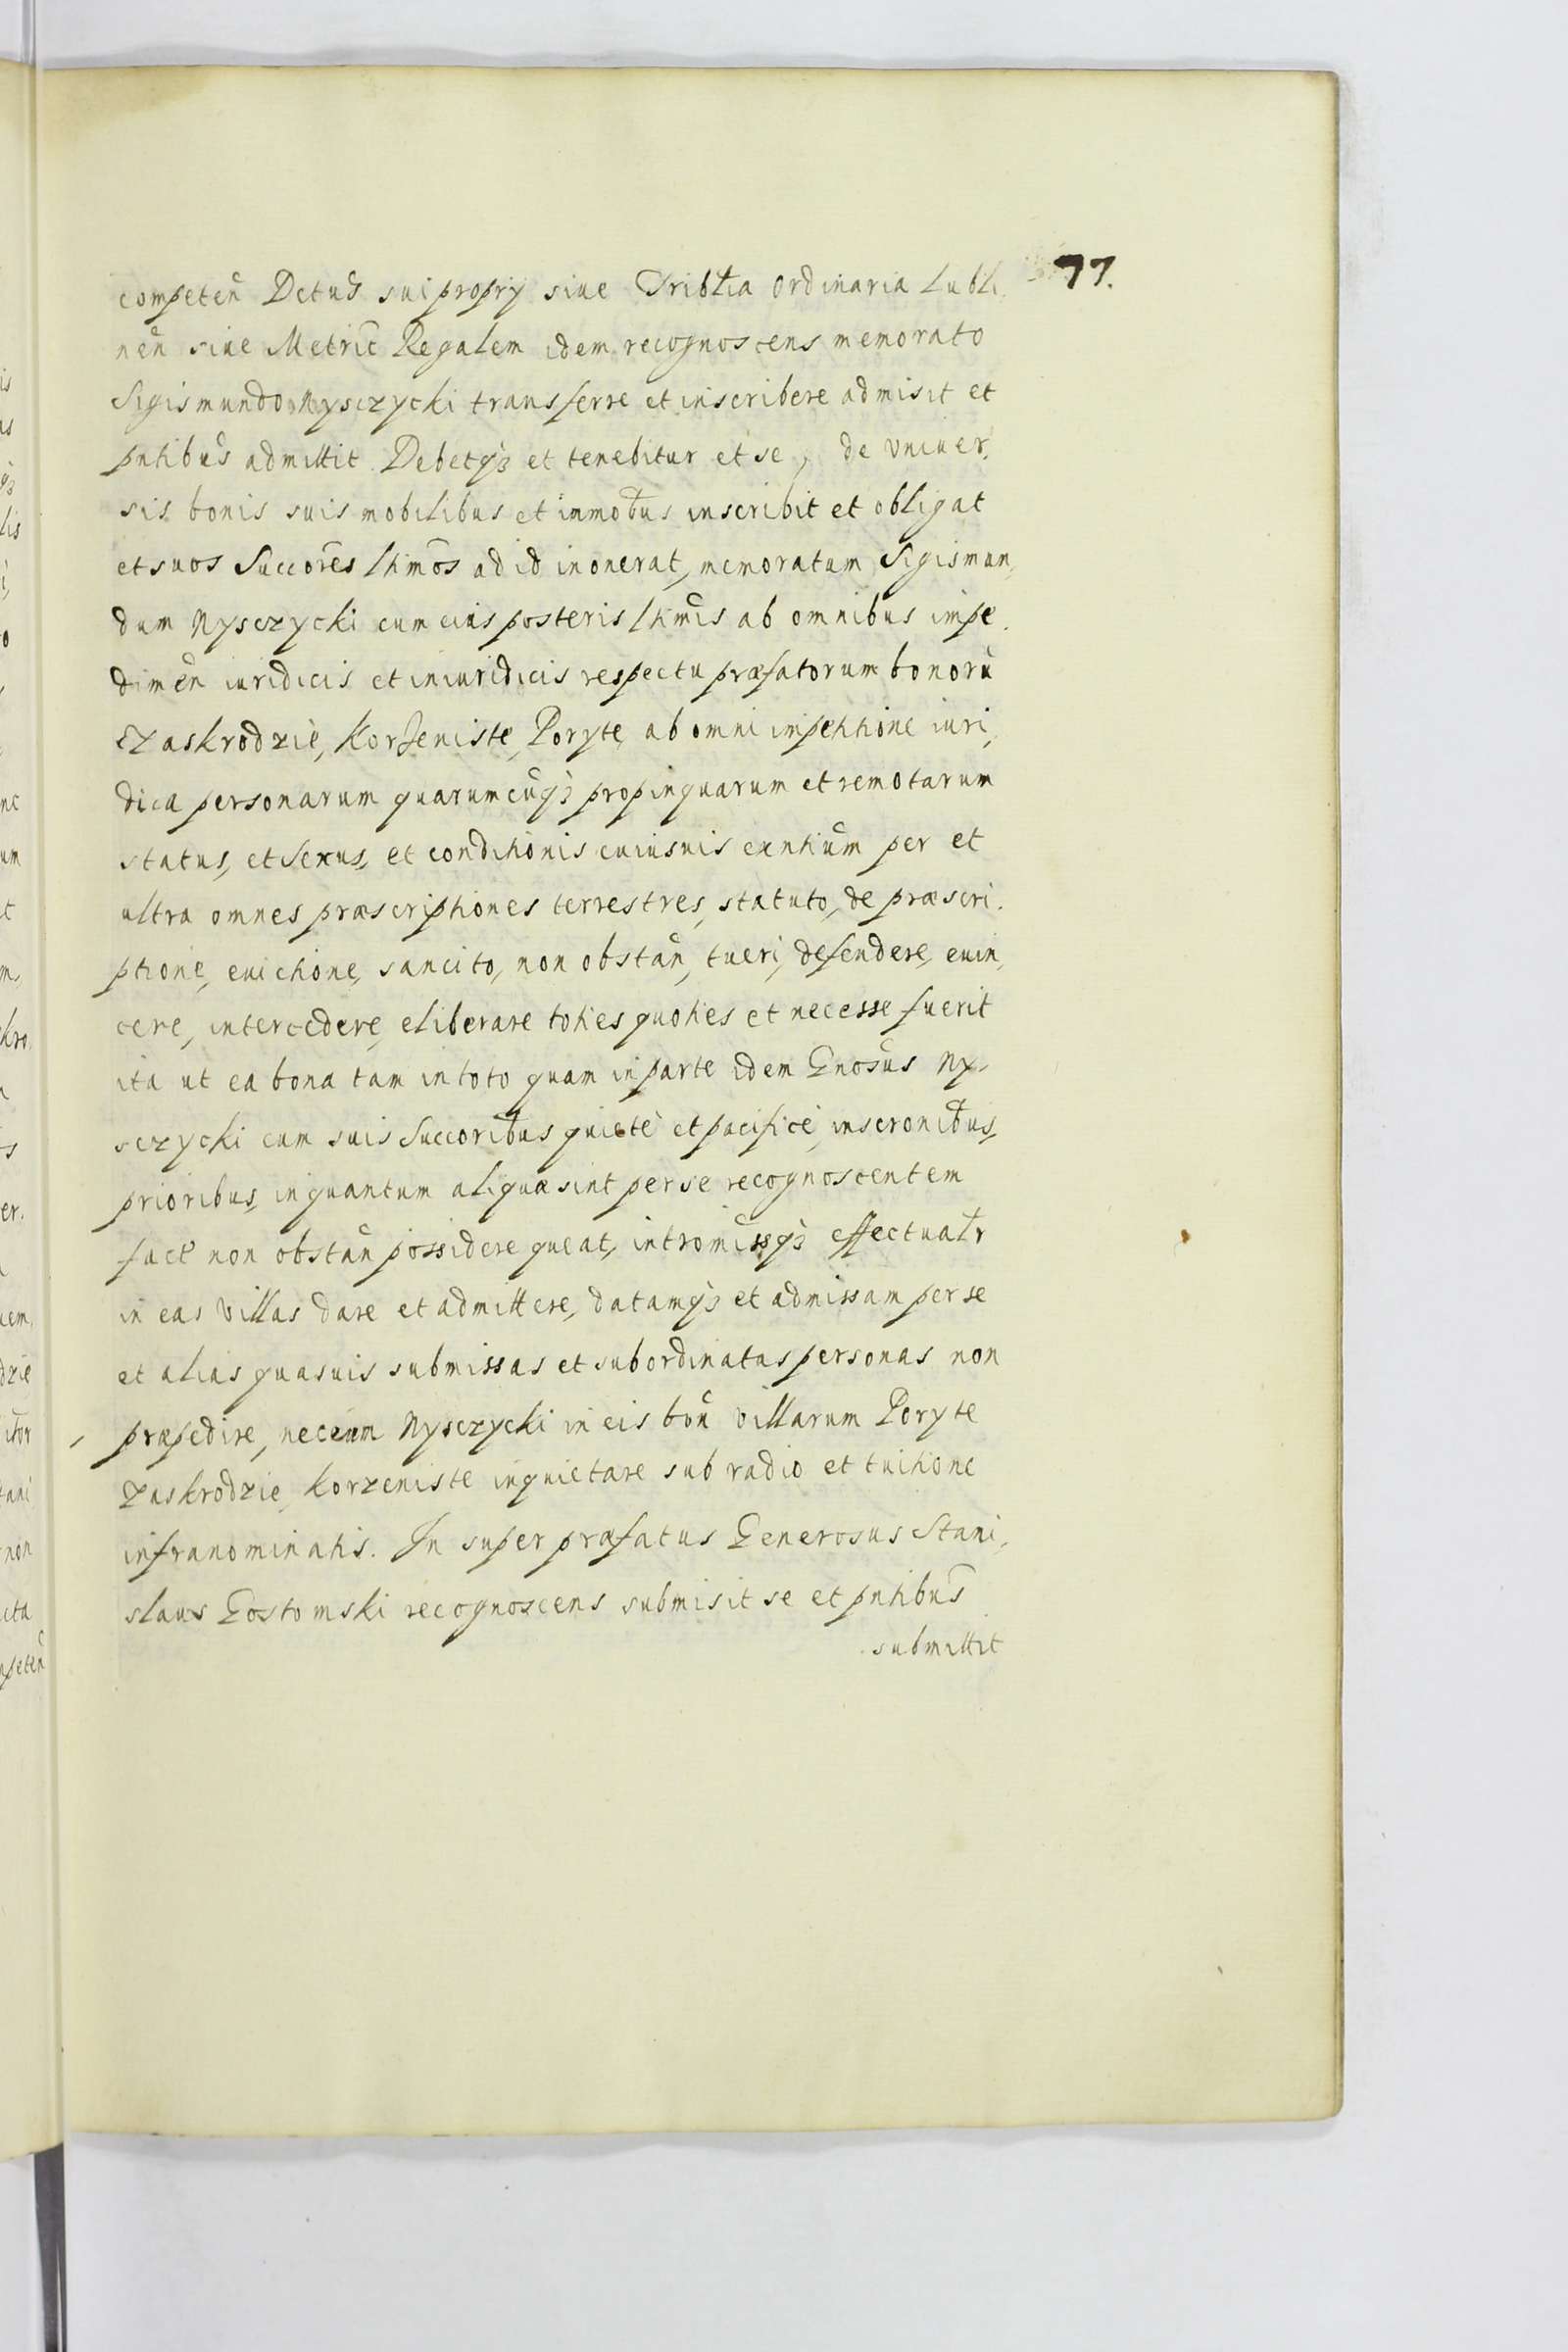 77.
competen̄ Dctus sui proprij siue Tribłia ordinaria Lubli,
nen̄ siue Metric̄ Regalem idem recognoscens memorato
Sigismundo Nysczycki transferre et inscribere admisit et
pntibus admittit Debetqз et tenebitur et se, de vniuer,
sis bonis suis mobilibus et immobus inscribit et obligat
et suos Succores ltimos ad id inonerat, memoratum Sigismun,
dum Nysczycki cum eius posteris ltimis ab omnibus impe,
dimen̄ iuridicis et iniuridicis respectu præfatorum bonorū
Zaskrodzie, Korzeniste, Poryte, ab omni impetitione iuri,
dica personarum quarumcūqз propinquarum et remotarum
status, et sexus, et conditionis cuiusuis exntium per et
ultra omnes præscriptiones terrestres, statuto, de præscri,
ptione, euictione, sancito, non obstan̄, tueri, defendere, euin,
cere, intercedere, eliberare toties quoties et necesse fuerit
ita ut ea bona tam in toto quam in parte idem Gnosus Ny,
sczycki cum suis Succoribus quietè et pacificè, inscronibus,
prioribus, inquantum aliquæ sint per se recognoscentem
fact non obstan̄ possidere queat, intromissqз effectualr
in eas villas dare et admittere, datamqз et admissam per se
et alias quasuis submissas et subordinatas personas non
præpedire, nec eum Nysczycki in eis bon̄ villarum Poryte
Zaskrodzie, Korzeniste inquietare sub vadio et tuitione
infranominatis. In super præfatus Generosus Stani,
slaus Gostomski recognoscens submisit se et pntibus
submittit